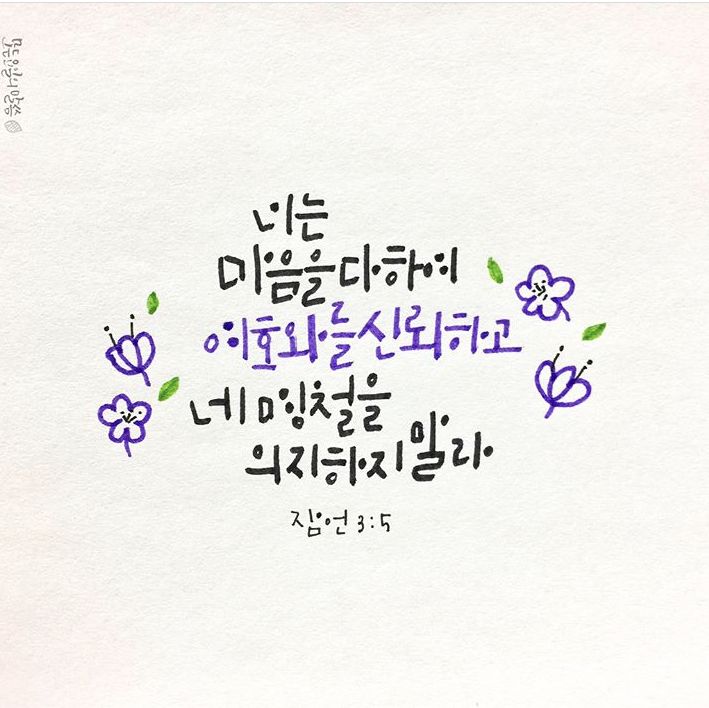 너는
마음을 다하여
여호와를 신뢰하고
네 명철을
의지하지 말라
잠언 3:5